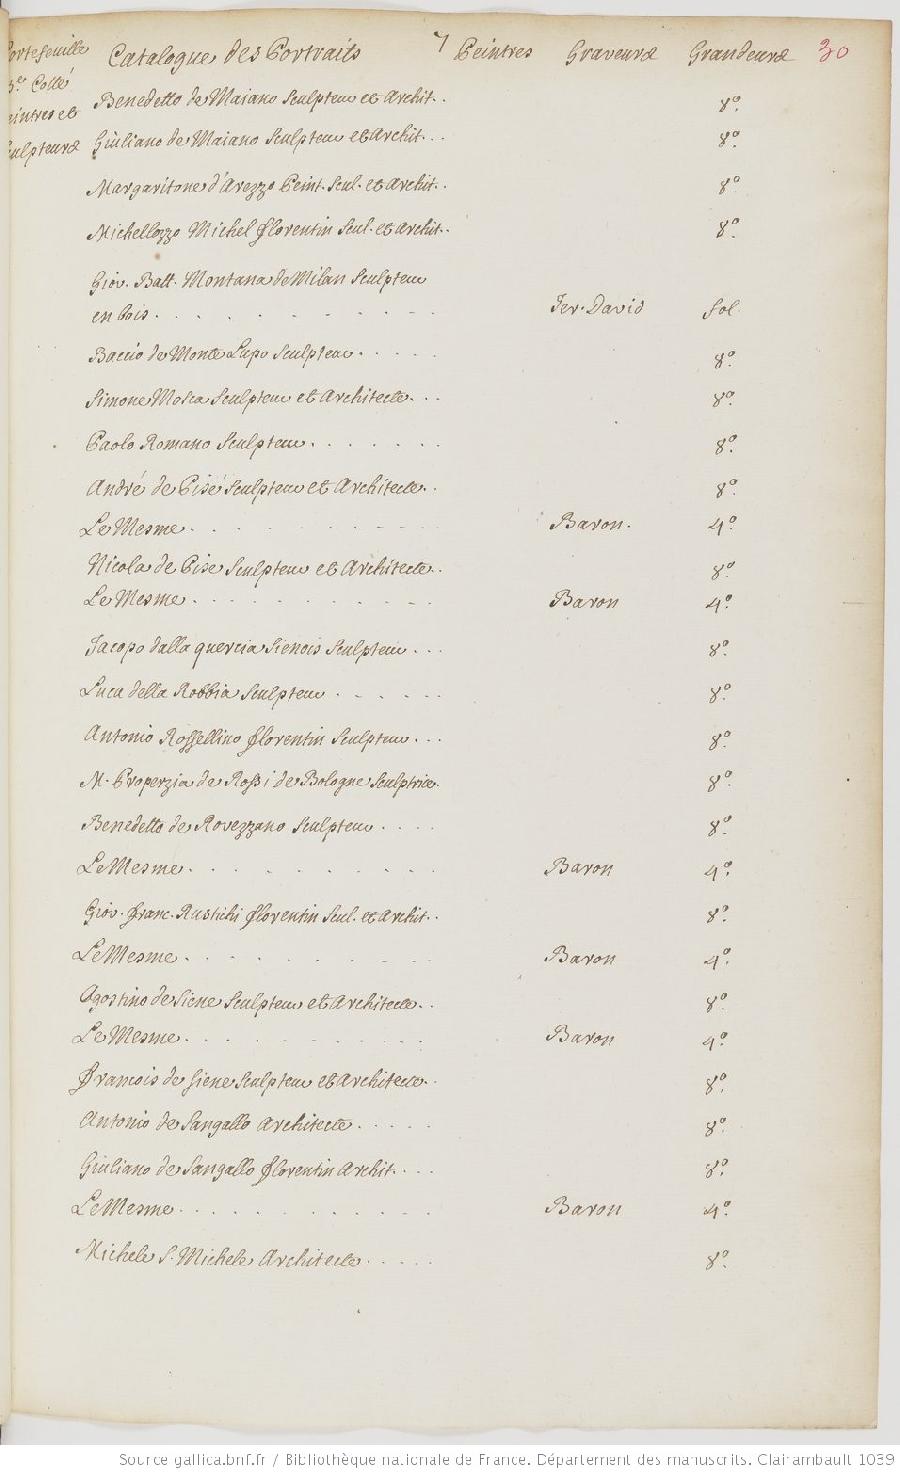 Portefeuille Catalogue des Portraits 7 Peintres Graveurs Grandeurs 30
3er Collé
Peintres et
Sculpteurs
Benedetto de Maiano Sculpteur et Archit. . 8º.
Giuliano de Maiano Sculpteur et Archit. . . 8º.
Margaritone d'Arezzo Peint. Scul. et Archit. . 8º.
Michellozzo Michel florentin Scul. et Archit. . 8º.
Giov. Batt. Montana de Milan Sculpteur
en bois. . . . . . . . . Jer. David fol.
Baccio de Monte Lupo Sculpteur. . . . . 8º.
Simone Mosca Sculpteur et Architecte. . . 8º.
Paolo Romano Sculpteur. . . . . . 8º.
André de Pise Sculpteur et Architecte. . 8º.
Le Mesme. . . . . . . . Baron. 4º.
Nicola de Pise Sculpteur et Architecte. . 8º.
Le Mesme. . . . . . . . Baron 4º.
Jacopo dalla quercia Sienois Sculpteur . . . 8º.
Luca della Robbia Sculpteur . . . . . . 8º.
Antonio Rossellino florentin Sculpteur. . . 8º.
M. Properzia de Rossi de Bologne Sculptrice. 8º.
Benedetto de Rovezzano Sculpteur . . . . 8º.
Le Mesme. . . . . . . . Baron 4º.
Giov. franc. Rustichi florentin Scul. et Archit. . 8º.
Le Mesme . . . . . . . . Baron 4º.
Agostino de Siene Sculpteur et Architecte. . 8º.
Le Mesme. . . . . . . . Baron 4º.
francois de Siene Sculpteur et Architecte. . 8º.
Antonio de Sangallo Architecte. . . . . 8º.
Giuliano de Sangallo florentin Archit. . . . 8º.
Le Mesme. . . . . . . . Baron 4º.
Michele S. Michele Architecte. . . . . 8º.
Source gallica.bnf.fr / Bibliothèque nationale de France. Département des manuscrits. Clairambault 1039